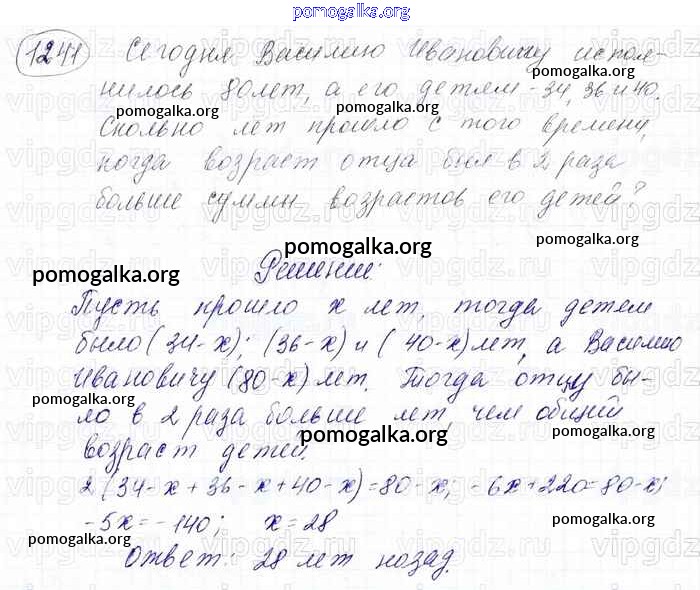 pomogalka.org
1241 Сегодня Василию Ивановичу испол-
нилось 80 лет, а его детям - 34, 36 и 40.
pomogalka.org pomogalka.org
Сколько лет прошло с того времени,
когда возраст отца был в 2 раза
pomogalka.org pomogalka.org
больше суммы возрастов его детей?
pomogalka.org pomogalka.org
pomogalka.org
Решение:
Пусть прошло x лет, тогда детям
было (34-x); (36-x) и (40-x) лет, а Василию
Ивановичу (80-x) лет. Тогда отцу бы-
pomogalka.org pomogalka.org
ло в 2 раза больше лет, чем общий
возраст детей.
pomogalka.org
2(34-x+36-x+40-x)=80-x; -6x+220=80-x;
pomogalka.org
-5x=-140; x=28
pomogalka.org pomogalka.org
Ответ: 28 лет назад.